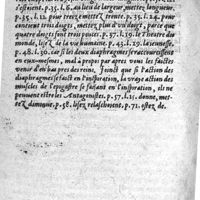 s'estoient. p. 35. l. 6. au lieu de largeur, mettez longueur.
p. 35. l. 12. pour treze mettez trente. p. 35. l. 24. pour
contient trois doigts, mettez plus d'un doigt, parce que
quatre doigts sont trois pouces. p. 37. l. 19. le theatre du
monde, lisez de la vie humaine. p. 43. l. 29. la jeunesse.
p. 48. l. 30. car si les deux diaphragmes se racourcissent
en eux-mesmes, mal à propos par apres vous les faictes
venir d'en bas pres des reins. Joinct que si l'action des
diaphragmes se faict en l'inspiration, la vraye action des
muscles de l'epigastre se faisant en l'inspiration, ils ne
peuvent estre les Antagonistes. p. 57. l. 15. donne, met-
tez diminue. p. 58. lisez relaschoient. p. 71. ostez de.